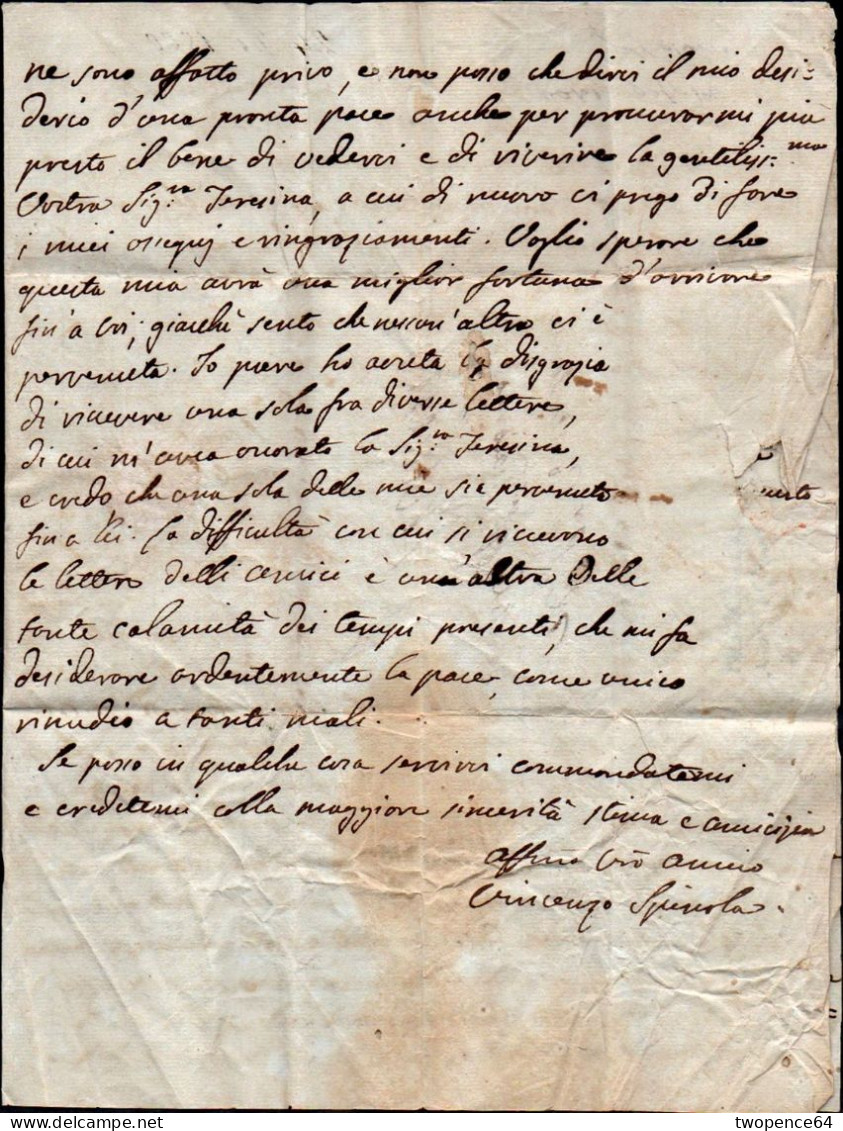 ne sono affatto privo, e non posso che dirvi il mio desi=
derio d'una pronta pace anche per procurarmi più
presto il bene di vedervi e di riverire la gentiliss:ma
Vostra Sig:ra Teresina, a cui di nuovo vi prego di fare
i miei ossequj e ringraziamenti. Voglio sperare che
questa mia avrà una miglior fortuna d'arrivare
fin'a voi; giacchè sento che nessun'altra vi è
pervenuta. Io pure ho avuta la disgrazia
di ricevere una sola fra diverse lettere,
di cui m'avea onorato la Sig:ra Teresina,
e credo che una sola delle mie sia pervenuta
fin a lei. La difficultà con cui si ricevono
le lettere delli amici è un'altra delle
tante calamità dei tempi presenti, che mi fa
desiderare ardentemente la pace, come unico
rimedio a tanti mali.
Se posso in qualche cosa servirvi commandatemi
e credetemi colla maggiore sincerità stima e amicizia
affmo vro amico
Vincenzo Spinola.
twopence64